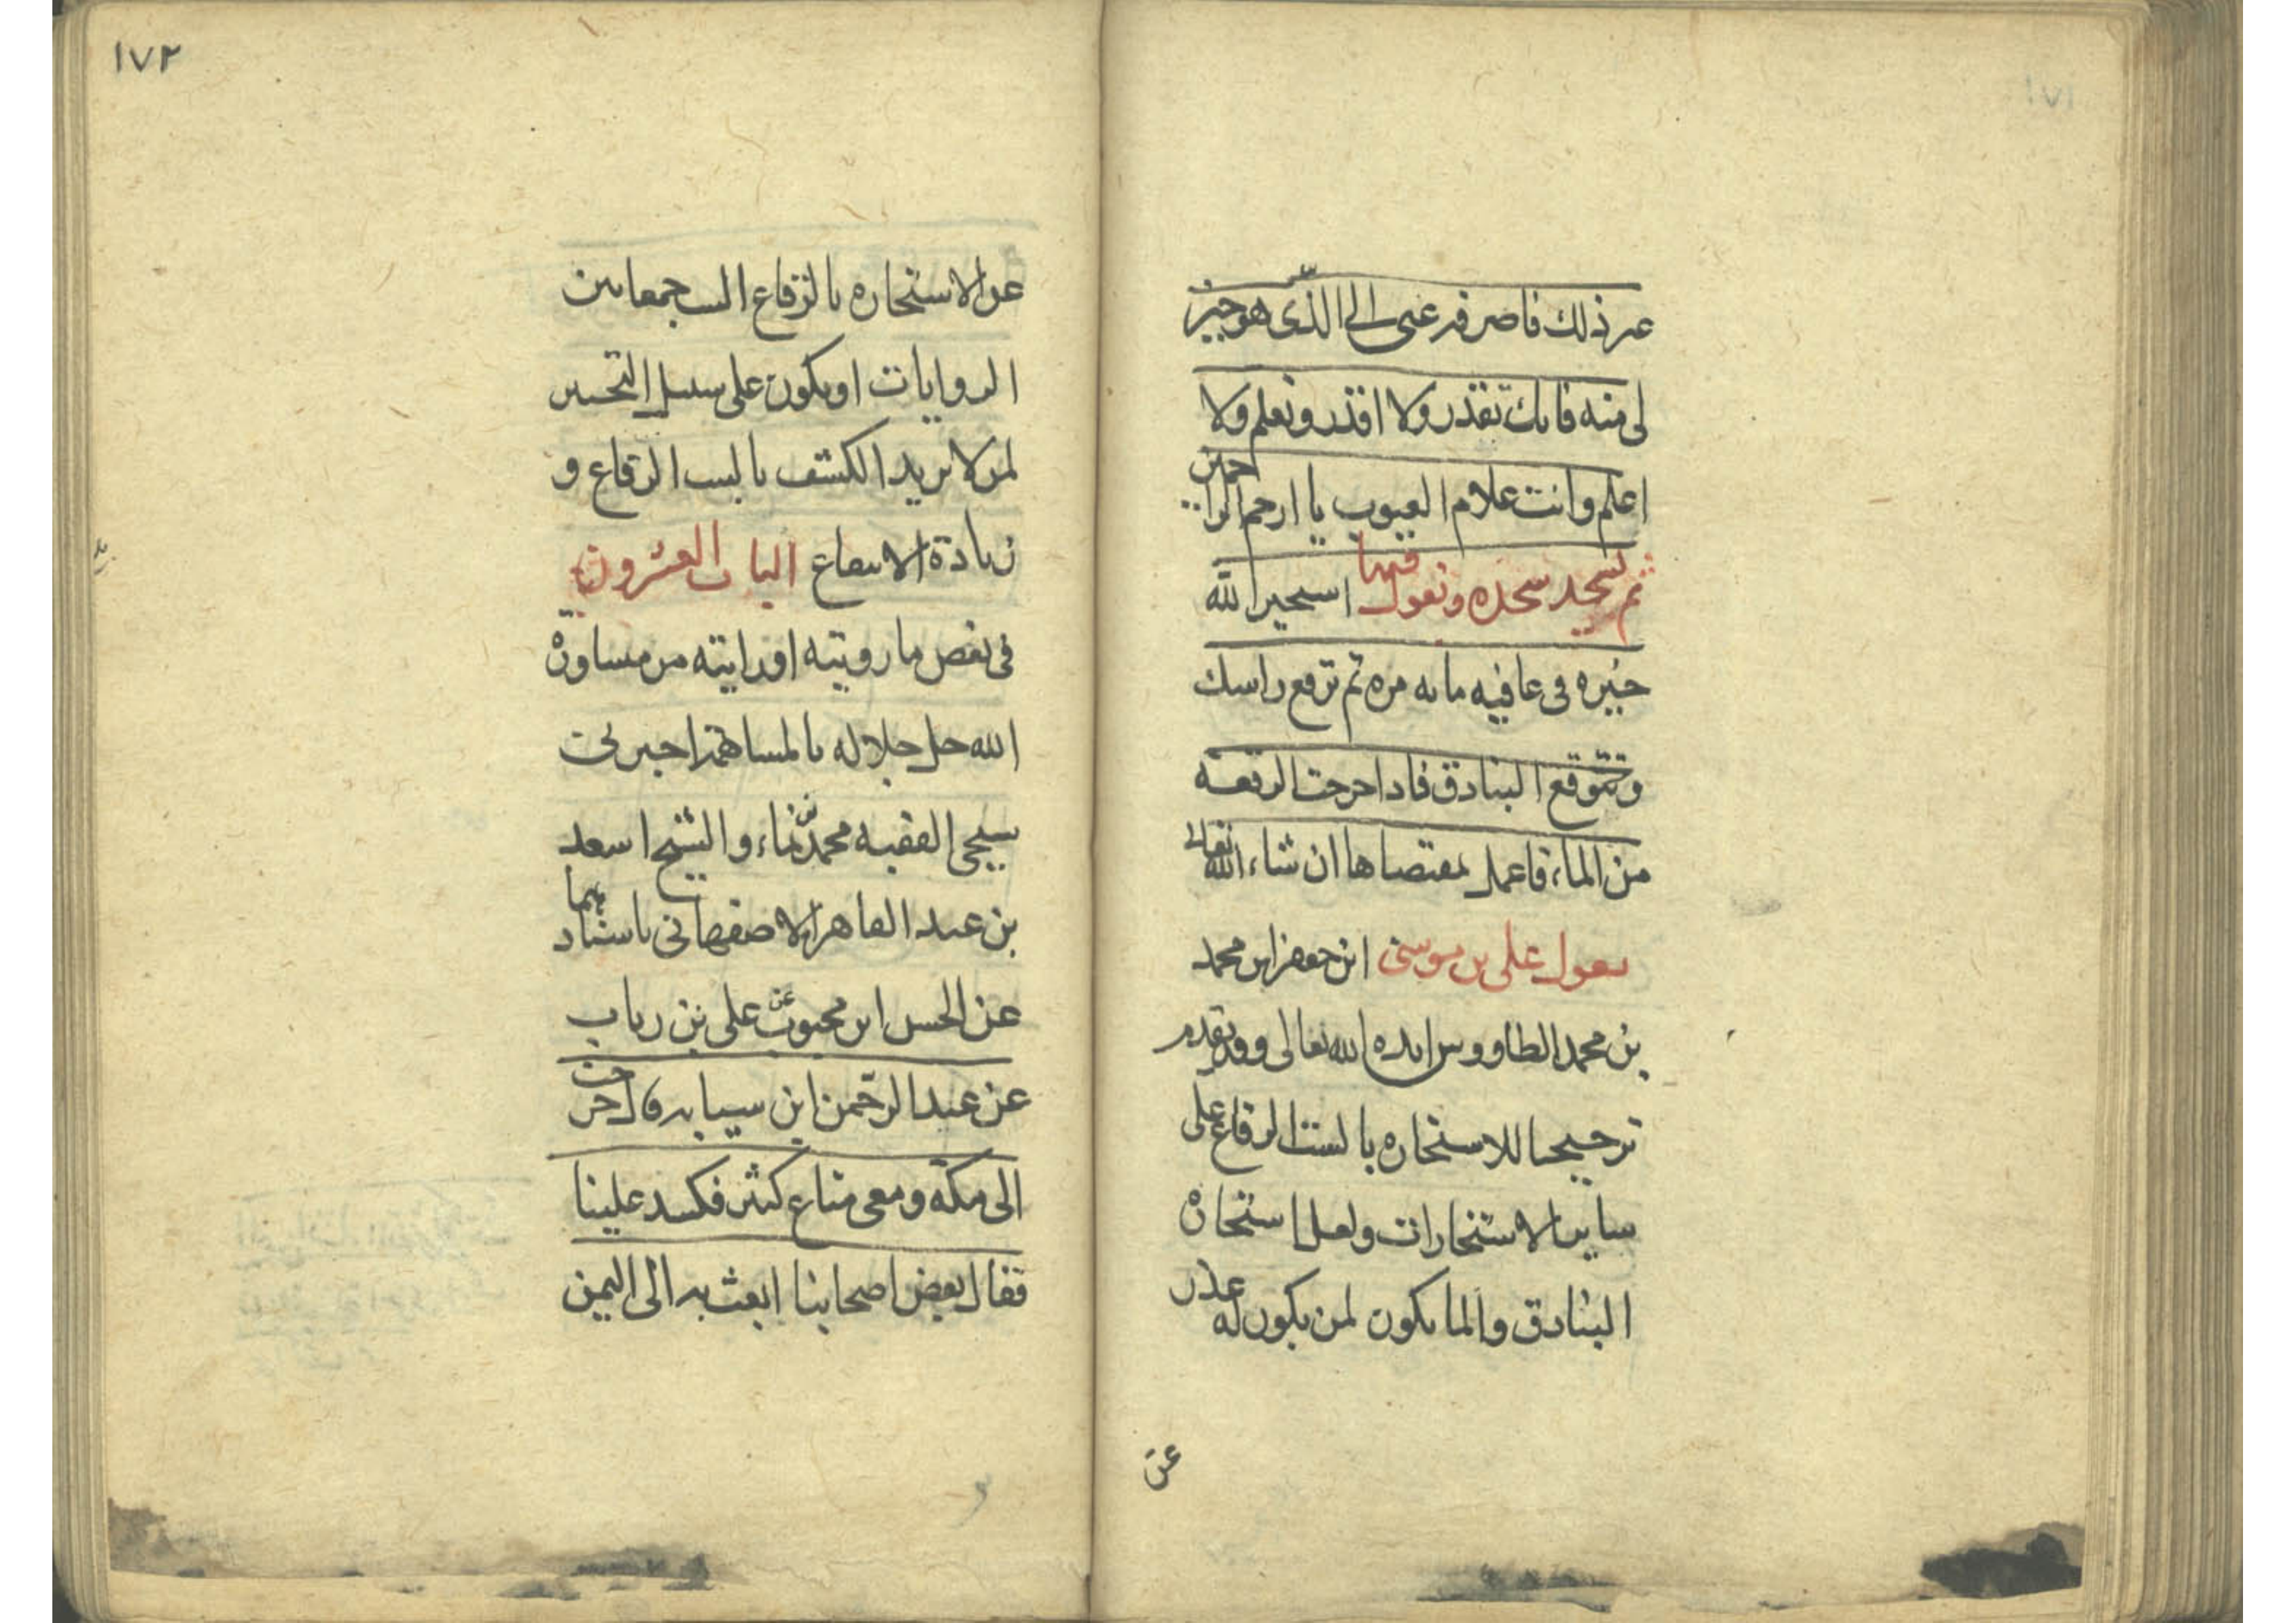 ١٧١
عن ذلك فاصرفه عنى الى الذى هو خير
لى منه فانك تقدر ولا اقدر وتعلم ولا
اعلم وانت علام الغيوب يا ارحم الراحمين
ثم تسجد سجده وتقول فيها استخير الله
خيره فى عافيه مايه مره ثم ترفع راسك
وتتوقع البنادق فاذا خرجت الرقعه
من الماء فاعمل بمقتضاها ان شاء الله تعالى
يقول على بن موسى ابن جعفر ابن محمد
بن محمد الطاووس ايده الله تعالى وقد تقدم
ترجيحنا للاستخاره بالست الرقاع على
ساير الاستخارات ولعل استخارة
البنادق والما يكون لمن يكون له عذر
عن
١٧٢
عن الاستخاره بالرقاع الست جمعا بين
الروايات او يكون على سبيل التخيير
لمن لا يريد الكشف بالست الرقاع و
زيادة الانتفاع الباب العشرون
فى بعض ما رويته او رايته من مشاورة
الله جل جلاله بالمساهمة اخبرنى
شيخى الفقيه محمد بن نماء والشيخ اسعد
بن عبد القاهر الاصفهانى باسنادهما
عن الحسن ابن محبوب عن على بن رياب
عن عبد الرحمن ابن سيابه قال خرجت
الى مكة ومعى متاع كثير فكسد علينا
فقال بعض اصحابنا ابعث به الى اليمن